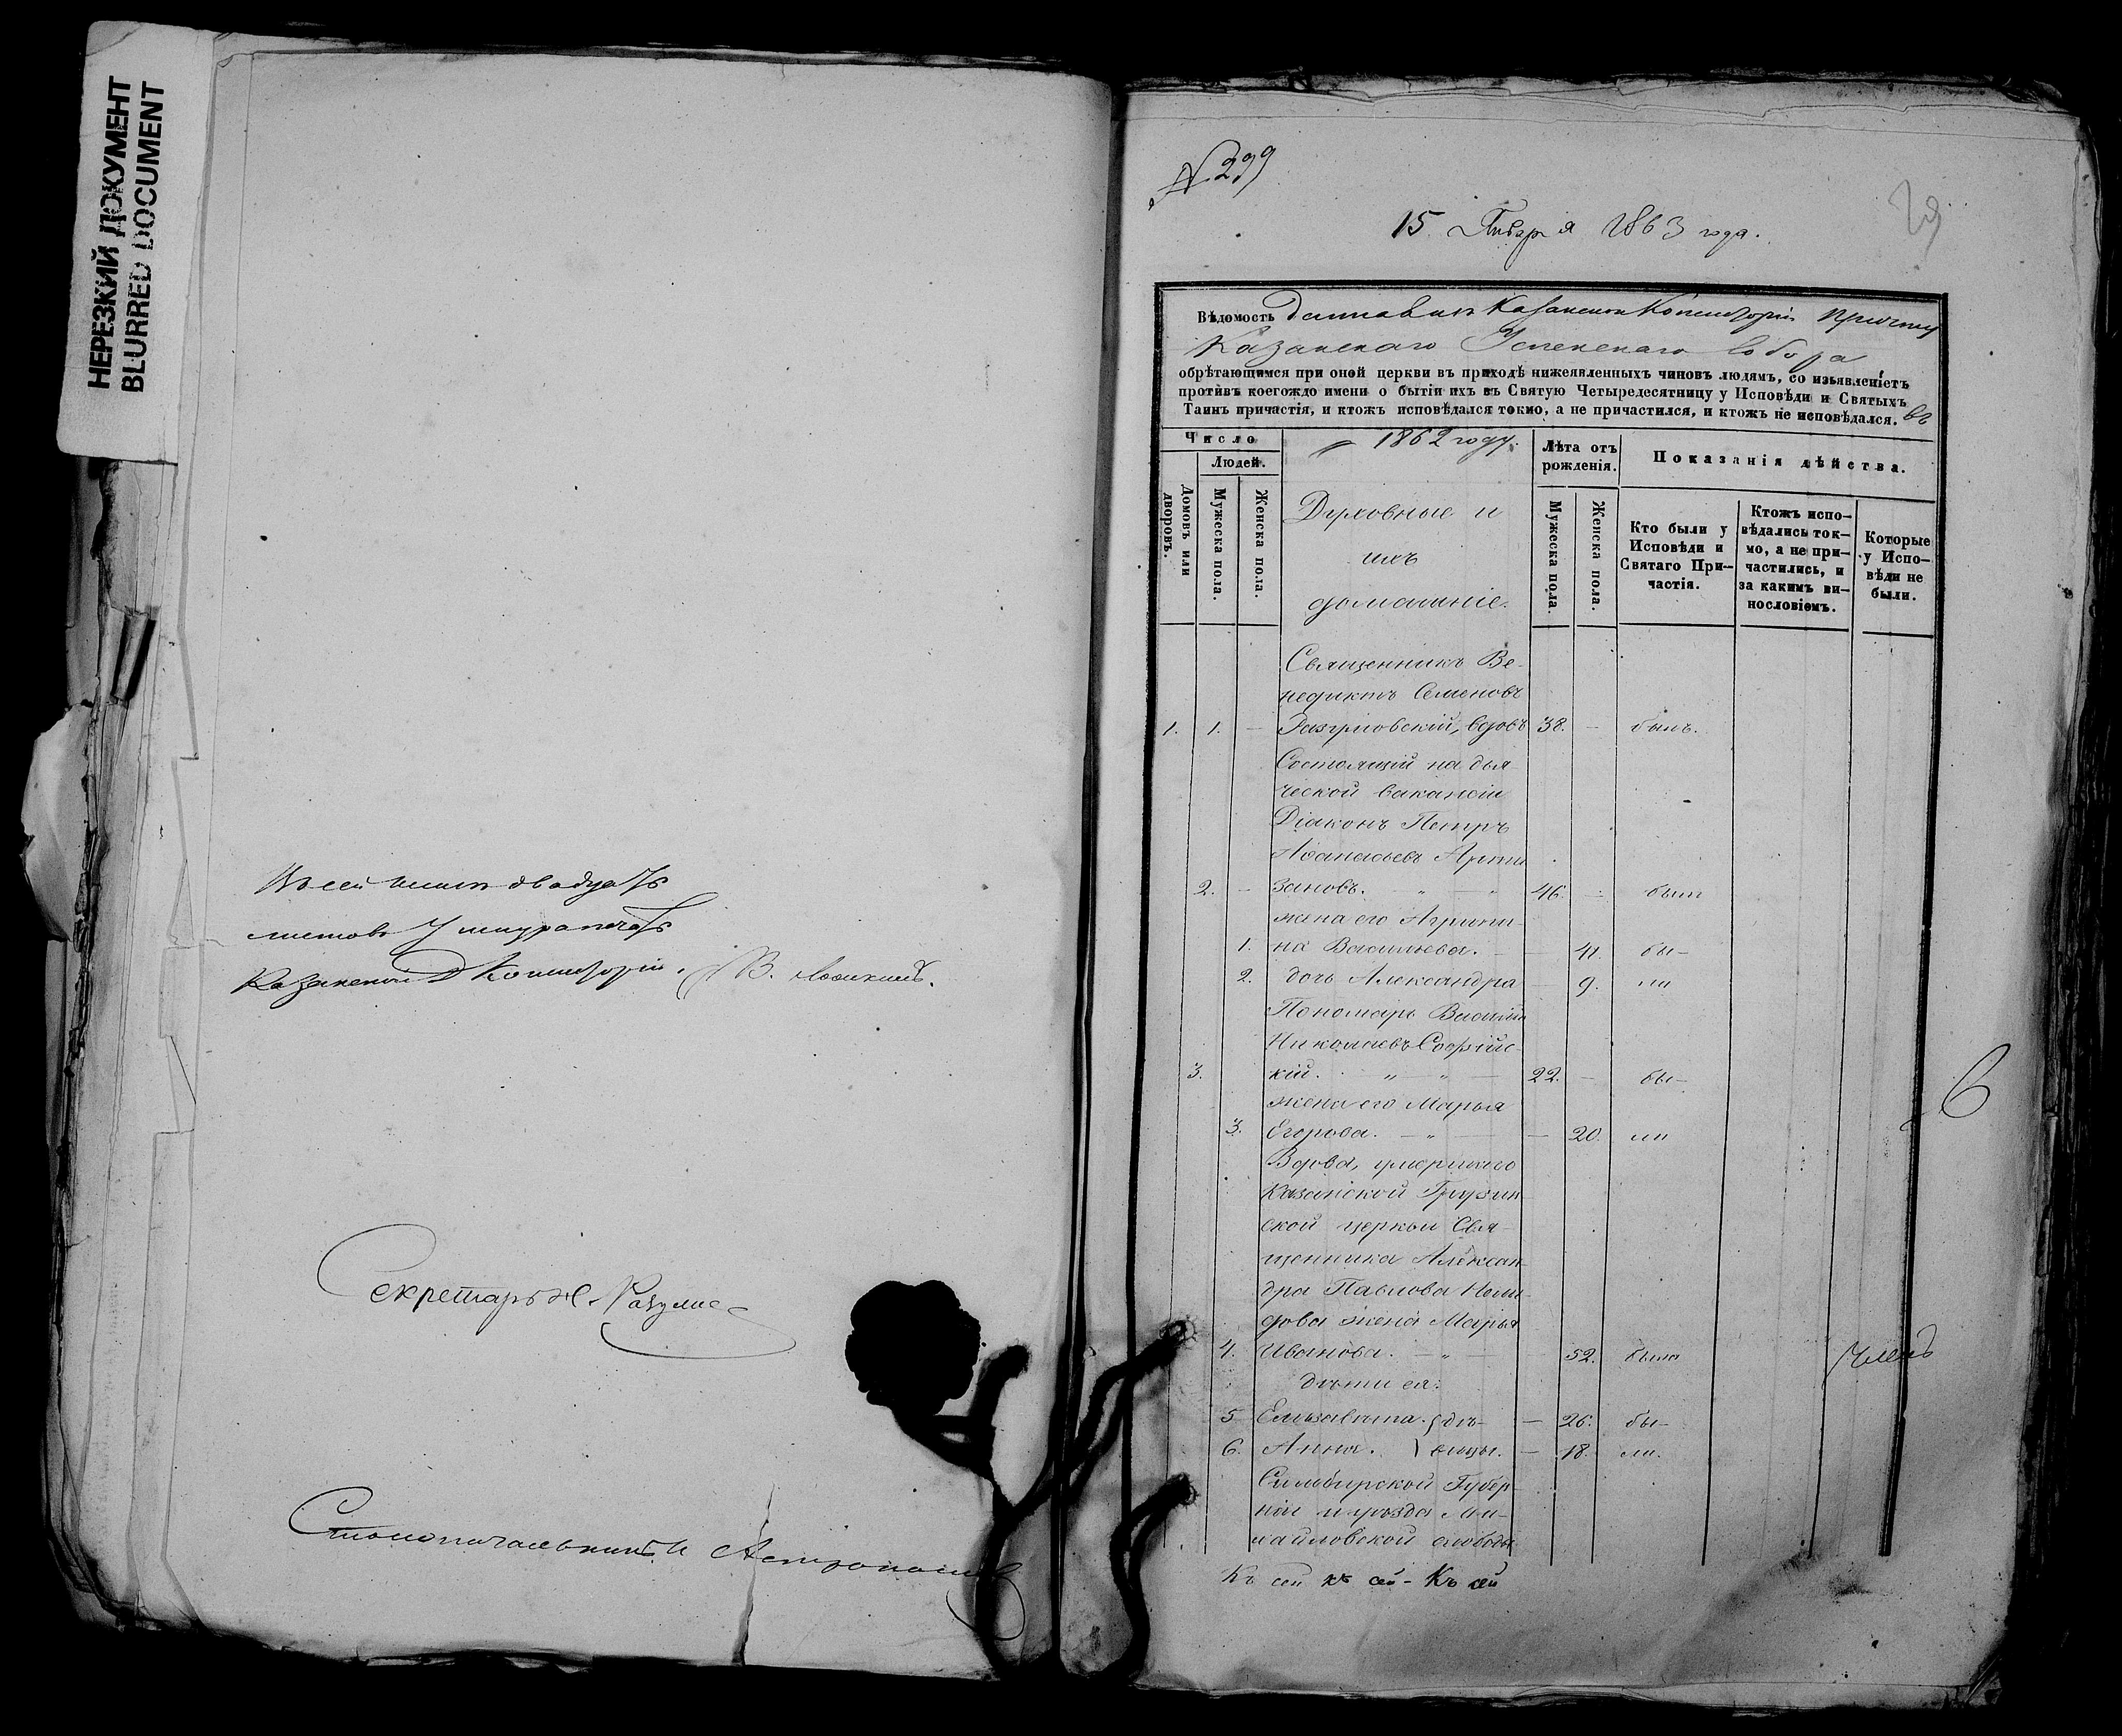 НЕРЕЗКИЙ ДОКУМЕНТ
BLURRED DOCUMENT
Въ сей книгѣ двадцать
листовъ
Казанской Д Консисторіи. В.
Секретарь
Столоначальникъ
№ 299
15 Января 1863 года.
29
Вѣдомость Казанской Консисторіи причту
Казанскаго Успенскаго Собора
обрѣтающимся при оной церкви въ приходѣ нижеявленныхъ чиновъ людямъ, со изъявленіемъ
противъ коегождо имени о бытіи ихъ въ Святую Четыредесятницу у Исповѣди и Святыхъ
Таинъ причастія, и ктожъ исповѣдался токмо, а не причастился, и ктожъ не исповѣдался. въ
1862 году.
Число
Людей.
Домовъ или дворовъ.
Мужеска пола.
Женска пола.
Духовные и
ихъ
домашніе.
Лѣта отъ рожденія.
Мужеска пола.
Женска пола.
Показанія дѣйства.
Кто были у Исповѣди и Святаго При-частія.
Ктожъ испо-вѣдались ток-мо, а не при-частились, и за какимъ ви-нословіемъ.
Которые у Испо-вѣди не были.
Священникъ Ве-
недиктъ Семеновъ
1. 1. — вдовъ 38. — былъ.
Состоящій на дья-
ческой вакансіи
Діаконъ Петръ
Аѳанасьевъ
2. — зановъ. — „ — „ 46. — былъ
жена его Агрипи-
1. на Васильева. — 41. бы-
2. дочь Александра — 9. ли
Пономарь Василій
Николаевъ Софійс-
3. кій. „ — „ — 22. — бы-
жена его Марья
3. Егорова. — „ — — 20. ли
Вдова, умершаго
Казанской Грузин-
ской церкви Свя-
щенника Алексан-
дра Павлова
дова жена Марья
4. Иванова. — „ — 52. была
дѣти ея:
5 Елизавета. } дѣ- — 26. бы-
6. Анна. } вицы. — 18. ли.
Симбирской Губер-
ніи и уѣзда Ми-
хайловской слободы
Къ сей къ сей - Къ сей
6
Членъ